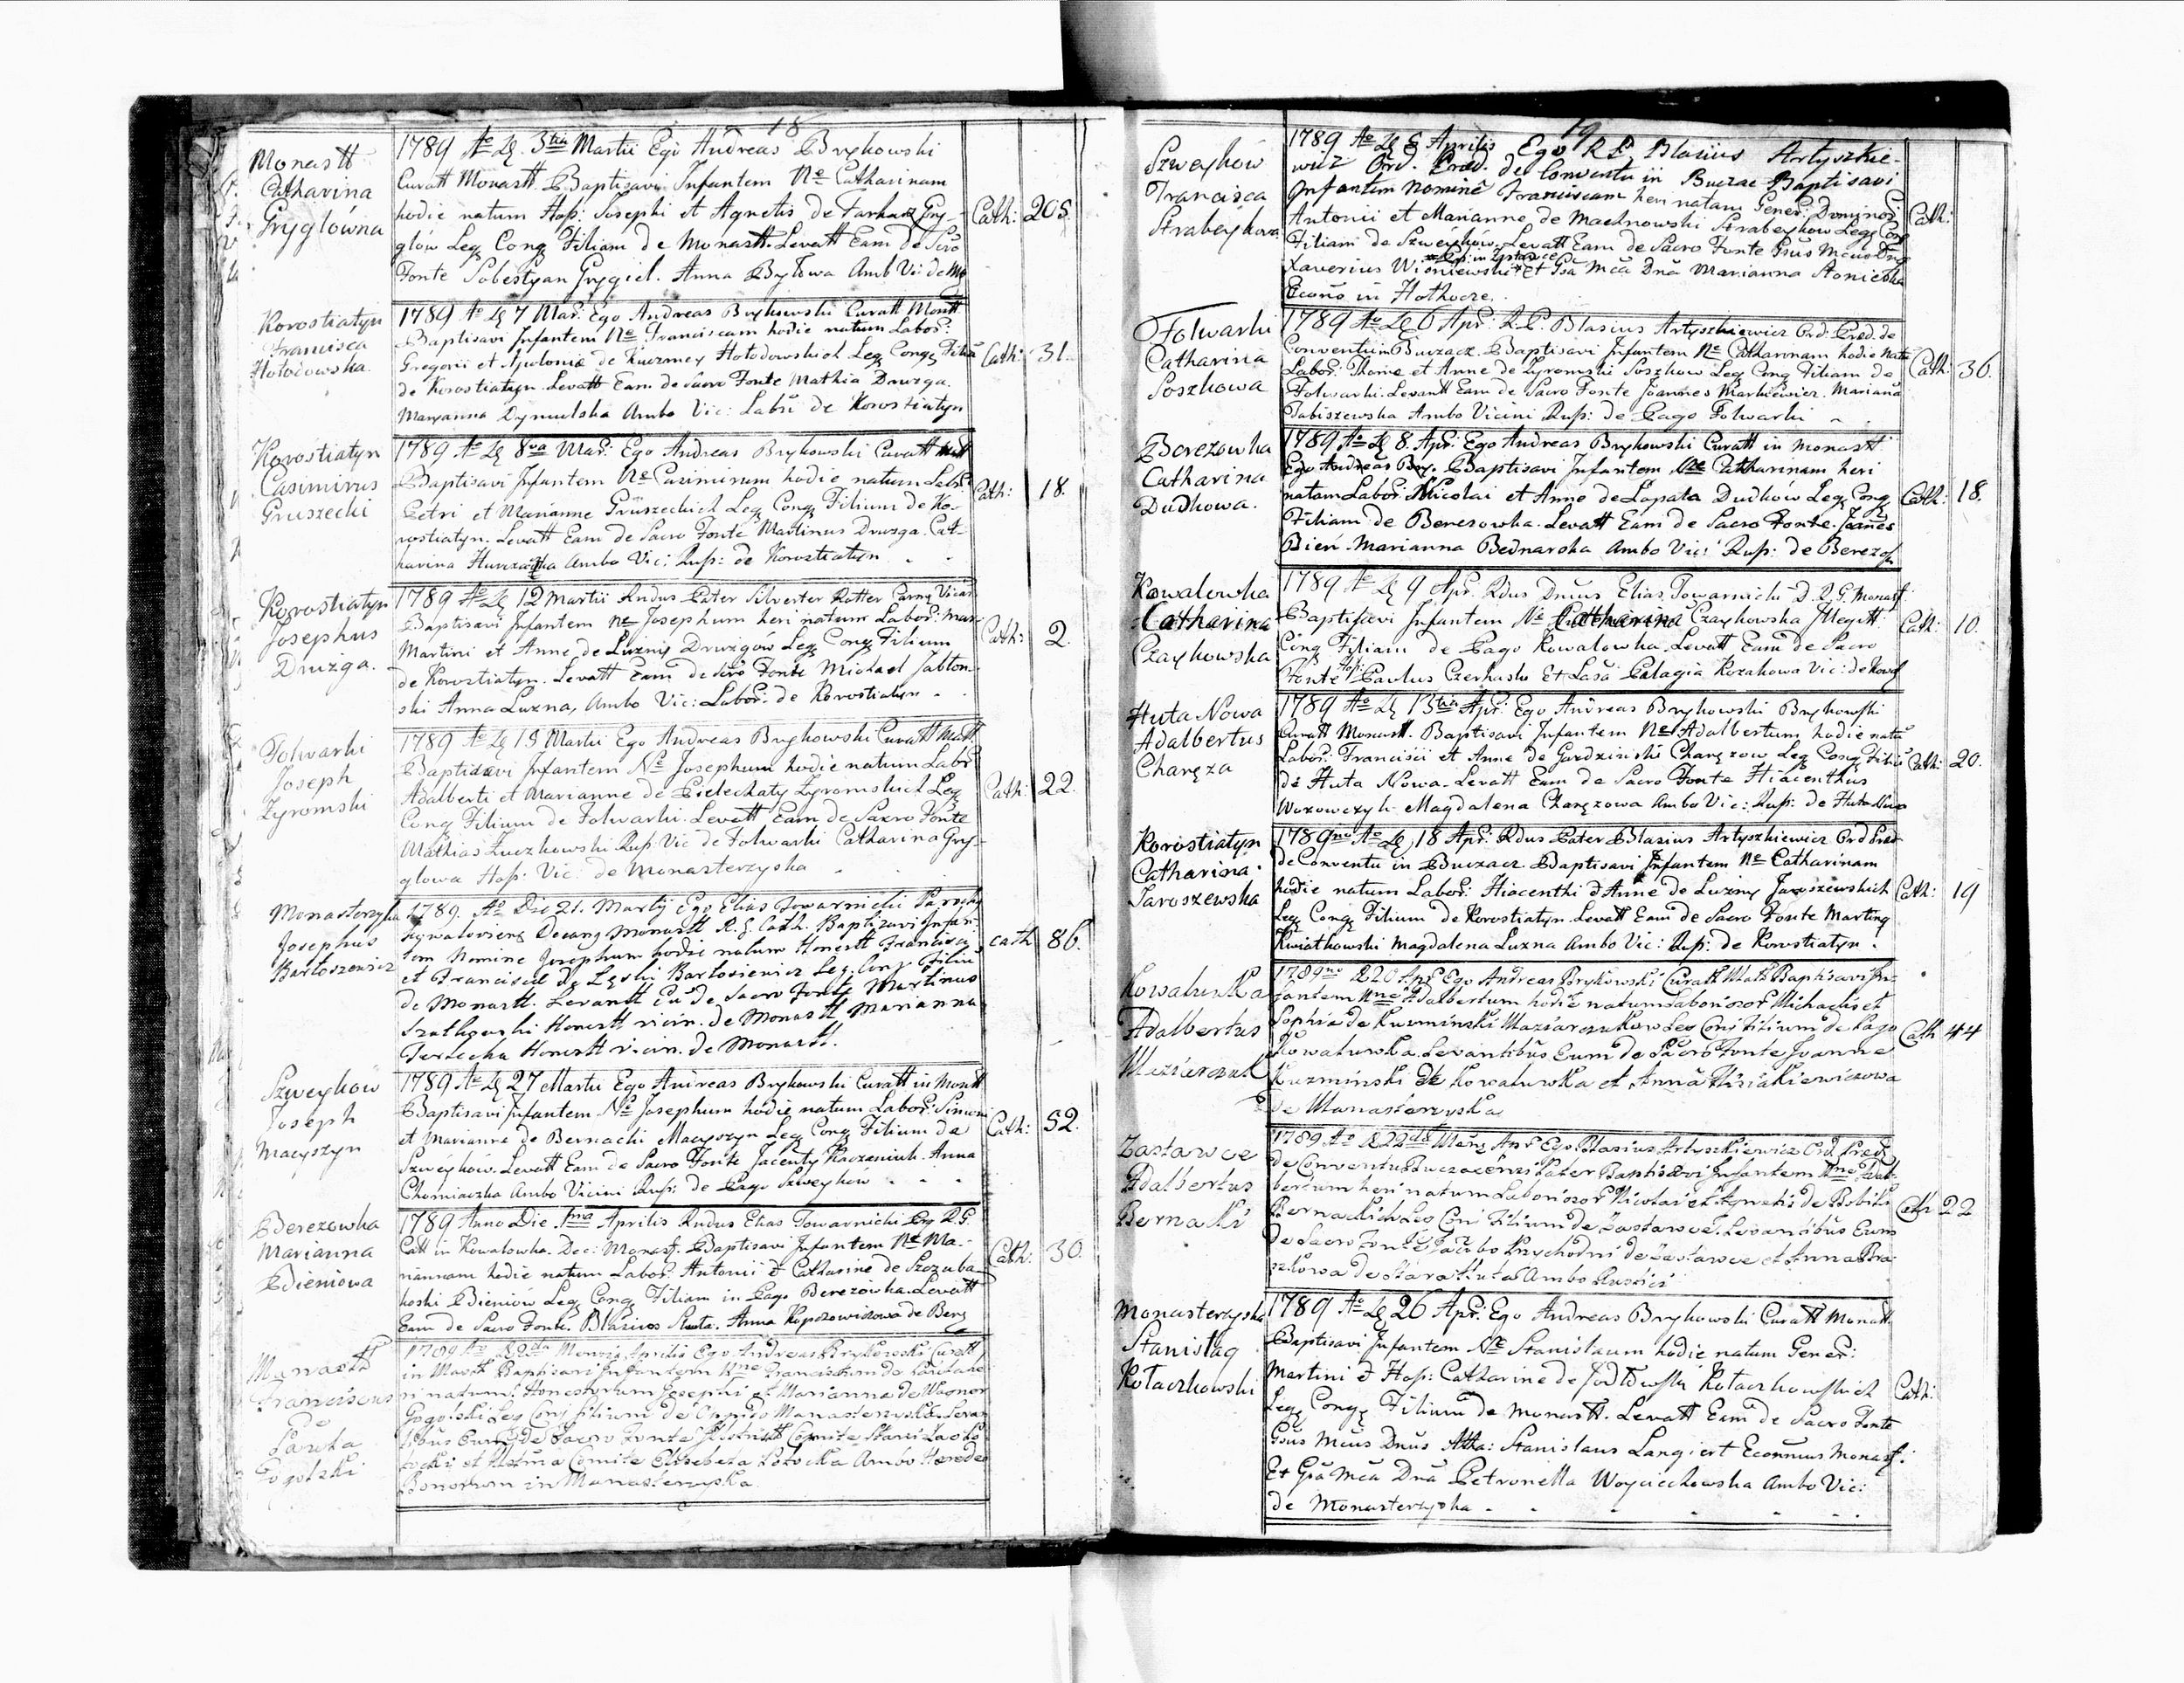 18
Monastt
Catharina
Gryglówna
1789 Ao De 3tia Martii Ego Andreas Brykowski
Curatt Monastt. Baptisavi Infantem Ne Catharinam
hodie natum Hop: Josephi et Agnetis de Tarhasz Gry-
glów Leg Cong Filiam de Monastt. Levatt Eam de Sero
Fonte Sobestyan Grygiel. Anna Bytowa Amb Vi: de Mo
Cath: 205.
Korostiatyn
Francisca
Hołodowska.
1789 Ao De 7 Mar: Ego Andreas Brykowski Curatt Montt
Baptisavi Infantem Ne Franciscam hodie natum Labor:
Gregorii et Apolonie de Kuczmey Hołodowskich Leg Cong Filia
de Korostiatyn. Levatt Eam de sacro Fonte Mathia Druzga.
Maryanna Dymulska Ambo Vic: Labū de Korostiatyn
Cath: 31.
Korostiatyn
Casimirus
Gruszecki
1789 Ao De 8va Mar: Ego Andreas Brykowski Curatt Mstt
Baptisavi Infantem Ne Casimirum hodie natum Labr:
Petri et Marianne Gruszeckich Leg Cong Filium de Ko-
rostiatyn. Levatt Eam de Sacro Fonte Martinus Druzga. Cat-
harina Ambo Vic: Rup: de Korostiatyn
Cath: 18.
Korostiatyn
Josephus
Druzga.
1789 Ao De 12 Martii Rndus Pater Silvester Rotter Carmy Vicar
Baptisavi Infantem Ne Josephum heri natum Labor: Mar
Martini et Anne de Luzny Druzgów Leg Cong Filium
de Korostiatyn. Levatt Eam de sero Fonte Michael Jablon-
ski Anna Luzna, Ambo Vic: Labor: de Korostiatyn
Cath: 2.
Folwarki
Joseph
Zyromski
1789 Ao De 15 Martii Ego Andreas Brykowski Curatt Mstt
Baptisavi Infantem Ne Josephum hodie natum Labr
Adalberti et Marianne de Pielechaty Zyromskich Leg
Cong Filium de Folwarki. Levatt Eam de Sacro Fonte
Mathias Łuczkowski Rup Vic de Folwarki Catharina Gry-
glowa Hop: Vic: de Monasterzyska
Cath: 22.
Monasterzyska
Josephus
Bartoszewicz
1789. Ao Die 21. Martij Ego Elias Towarnicki Paroch
Decang Monastt R. G. Cath. Baptizavi Infan-
tem Nomine Josephum hodie natum Honestt Francisci
et Francisce de Lęski Bartosiewicz Leg. Conj Filiu
de Monastt. Levantt Eū de Sacro Fonte Martinus
Honestt vicin. de Monastt Marianna
Terlecka Honestt vicin. de Monastt.
cath 86.
Szweyków
Joseph
Macyszyn
1789 Ao De 27 Martii Ego Andreas Brykowski Curatt in Monstt
Baptisavi Infantem Ne Josephum hodie natum Labor: Simoni
et Marianne de Bernacki Macyszyn Leg Cong Filium de
Szweyków. Levatt Eam de Sacro Fonte Jacenty Kaczaniuk. Anna
Chomiaczka Ambo Vicini Rup: de Pago Szweyków
Cath: 52.
Berezowka
Marianna
Bieniowa
1789 Anno Die 1ma Aprilis Rndus Elias Towarnicki R. G.
Catt in Kowalowka. Dec: Monast. Baptisavi Infantem Ne Ma-
riannam hodie natum Labor: Antonii et Catharine de Szczuba
koski Bieniów Leg Cong Filiam in Pago Berezowka. Levatt
Eam de Sacro Fonte. Blasius Sluta. Anna Kopczowiczowa de Berez
Cath: 30.
Monastt
Franciscus
de
Paula
Gogolski
1789 Ao D 2da Mensis Aprilis Ego Andreas Brykowski Curatt
in Mostt Baptisavi Infantem Nne Franciscum de Paula he
ri natum. Honestorum Josephi et Marianna de Wagner
Gogolski Leg Conj filium de Oppido Monasterzyska. Levan
tibus Eum de Sacro Fonte Illustritt Comite Stanislao Po
tocki et Illstma Comite Elisabeta Potocka Ambo Heredes
Bonorum in Monasterzyska
19
Szweyków
Francisca
Strabeykowa
1789 Ao De Aprilis Ego R P. Blasius Artyszkie-
wicz Ord. Pred. de Conventu in Buczac Baptisavi
Infantem Nomine Franciscam heri natam Gener: Dominor
Antonii et Marianne de Machnowski Strabeykow Leg Cog
Filiam de Szweyków. Levatt Eam de Sacro Fonte Gsus Mcus Dng
Xaverius Wisniewski Et Gsa Mca Dna Marianna Stoniecka
Econo in Hothocze.
Cath:
Folwarki
Catharina
Soszkowa
1789 Ao De 6 Apr: R. P. Blasius Artyszkiewicz Ord: Pred. de
Conventu in Buczacz. Baptisavi Infantem Ne Catharinam hodie nata
Labor: Thome et Anne de Zyromski Soszkow Leg Cong Filiam de
Folwarki. Levantt Eam de Sacro Fonte Joannes Markiewicz. Marianā
Tabiszewska Ambo Vicini Rup: de Pago Folwarki
Cath: 36.
Berezowka
Catharina
Dudkowa.
1789 Ao De 8. Apr: Ego Andreas Brykowski Curatt in Monastt
Ego Andreas Bry. Baptisavi Infantem Ne Catharinam heri
natam Labor: Nicolai et Anne de Lopata Dudków Leg Cong
Filiam de Berezowka. Levatt Eam de Sacro Fonte. Joanes
Bień. Marianna Bednarska Ambo Vic: Rup: de Berezof
Cath: 18.
Kowalowka
Catharina
Czaykowska
1789 Ao De 9 Apr. Rdus Dnus Elias Towarnicki D. R. G. Monast.
Baptisavi Infantem Ne Catharina Czaykowska Illegitt:
Cong Filiam de Pago Kowalowka. Levatt Eam de Sacro
Fonte Hop: Paulus Czerkaski Et Lasa Palagia Kozakowa Vic: de Kowal
Cath: 10.
Huta Nowa
Adalbertus
Charęza
1789 Ao De 13tia Apr: Ego Andreas Brykowski Brykowski
Curatt Monastt. Baptisavi Infantem Ne Adalbertum hodie natū
Labor: Francisci et Anne de Gardzinski Charęzow Leg Cong Filiu
de Huta Nowa. Levatt Eam de Sacro Fonte Hiacenthus
Wozowczyk. Magdalena Charęzowa Ambo Vic: Rup: de Huta Nwa
Cath: 20.
Korostiatyn
Catharina
Jaroszewska
1789no Ao De 18 Apr: Rdus Pater Blasius Artyszkiewicz Ord Pred
de Conventu in Buczacz. Baptisavi Infantem Ne Catharinam
hodie natum Labor: Hiacenthi et Anne de Luzny Jaroszewskich
Leg Cong Filium de Korostiatyn. Levatt Eam de Sacro Fonte Marting
Kwiatkowski Magdalena Luzna Ambo Vic: Rup: de Korostiatyn.
Cath: 19
Kowaluwka
Adalbertus
Maziarczuk
1789no D 20 Apr Ego Andreas Brykowski Curatt Mstt Baptisavi In-
fantem Nne Adalbertum hodie natum Laborosor Michaelis et
Sophia de Kuzminski Maziarczukow Leg Conj Filium de Pago
Kowaluwka. Levantibus Eum de Sacro Fonte Joanne
Kuzminski de Kowaluwka et Anna
de Monasterzyska
Cath 44
Zastawce
Adalbertus
Bernaki
1789 Ao D 22da Mens Apr Ego Blasius Artyszkiewicz Ord Pred
de Conventu Buczacensi Pater Baptisavi Infantem Nne Adal-
bertum heri natum Laboriosor Nicolai et Agnetis de Bobik
Bernackich Leg Conj Filium de Zastawce. Levantibus Eum
de Sacro Fonte Jacobo Przychodni de Zastawce et Anna
de Stara Huta Ambo Rustici
Cath 22
Monasterzyska
Stanislaq
Kołaczkowski
1789 Ao De 26 Apr: Ego Andreas Brykowski Curatt Monastt
Baptisavi Infantem Ne Stanislaum hodie natum Gener:
Martini et Hop: Catharine de Jodłowski Kołaczkowskich
Leg Cong Filium de Monastt. Levatt Eam de Sacro Fonte
Gsus Mcus Dnus Atta: Stanislaus Langiert Economus Monast:
Et Gsa Mca Dna Petronella Woyciechowska Ambo Vic:
de Monasterzyska
Cath: